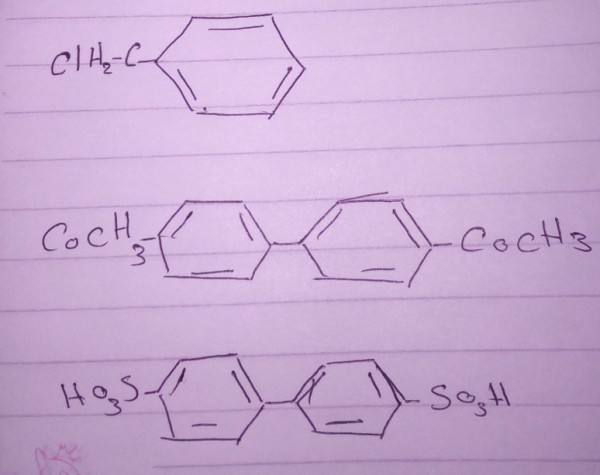 ClH₂-C-
COCH₃- -COCH₃
HO₃S- -SO₃H